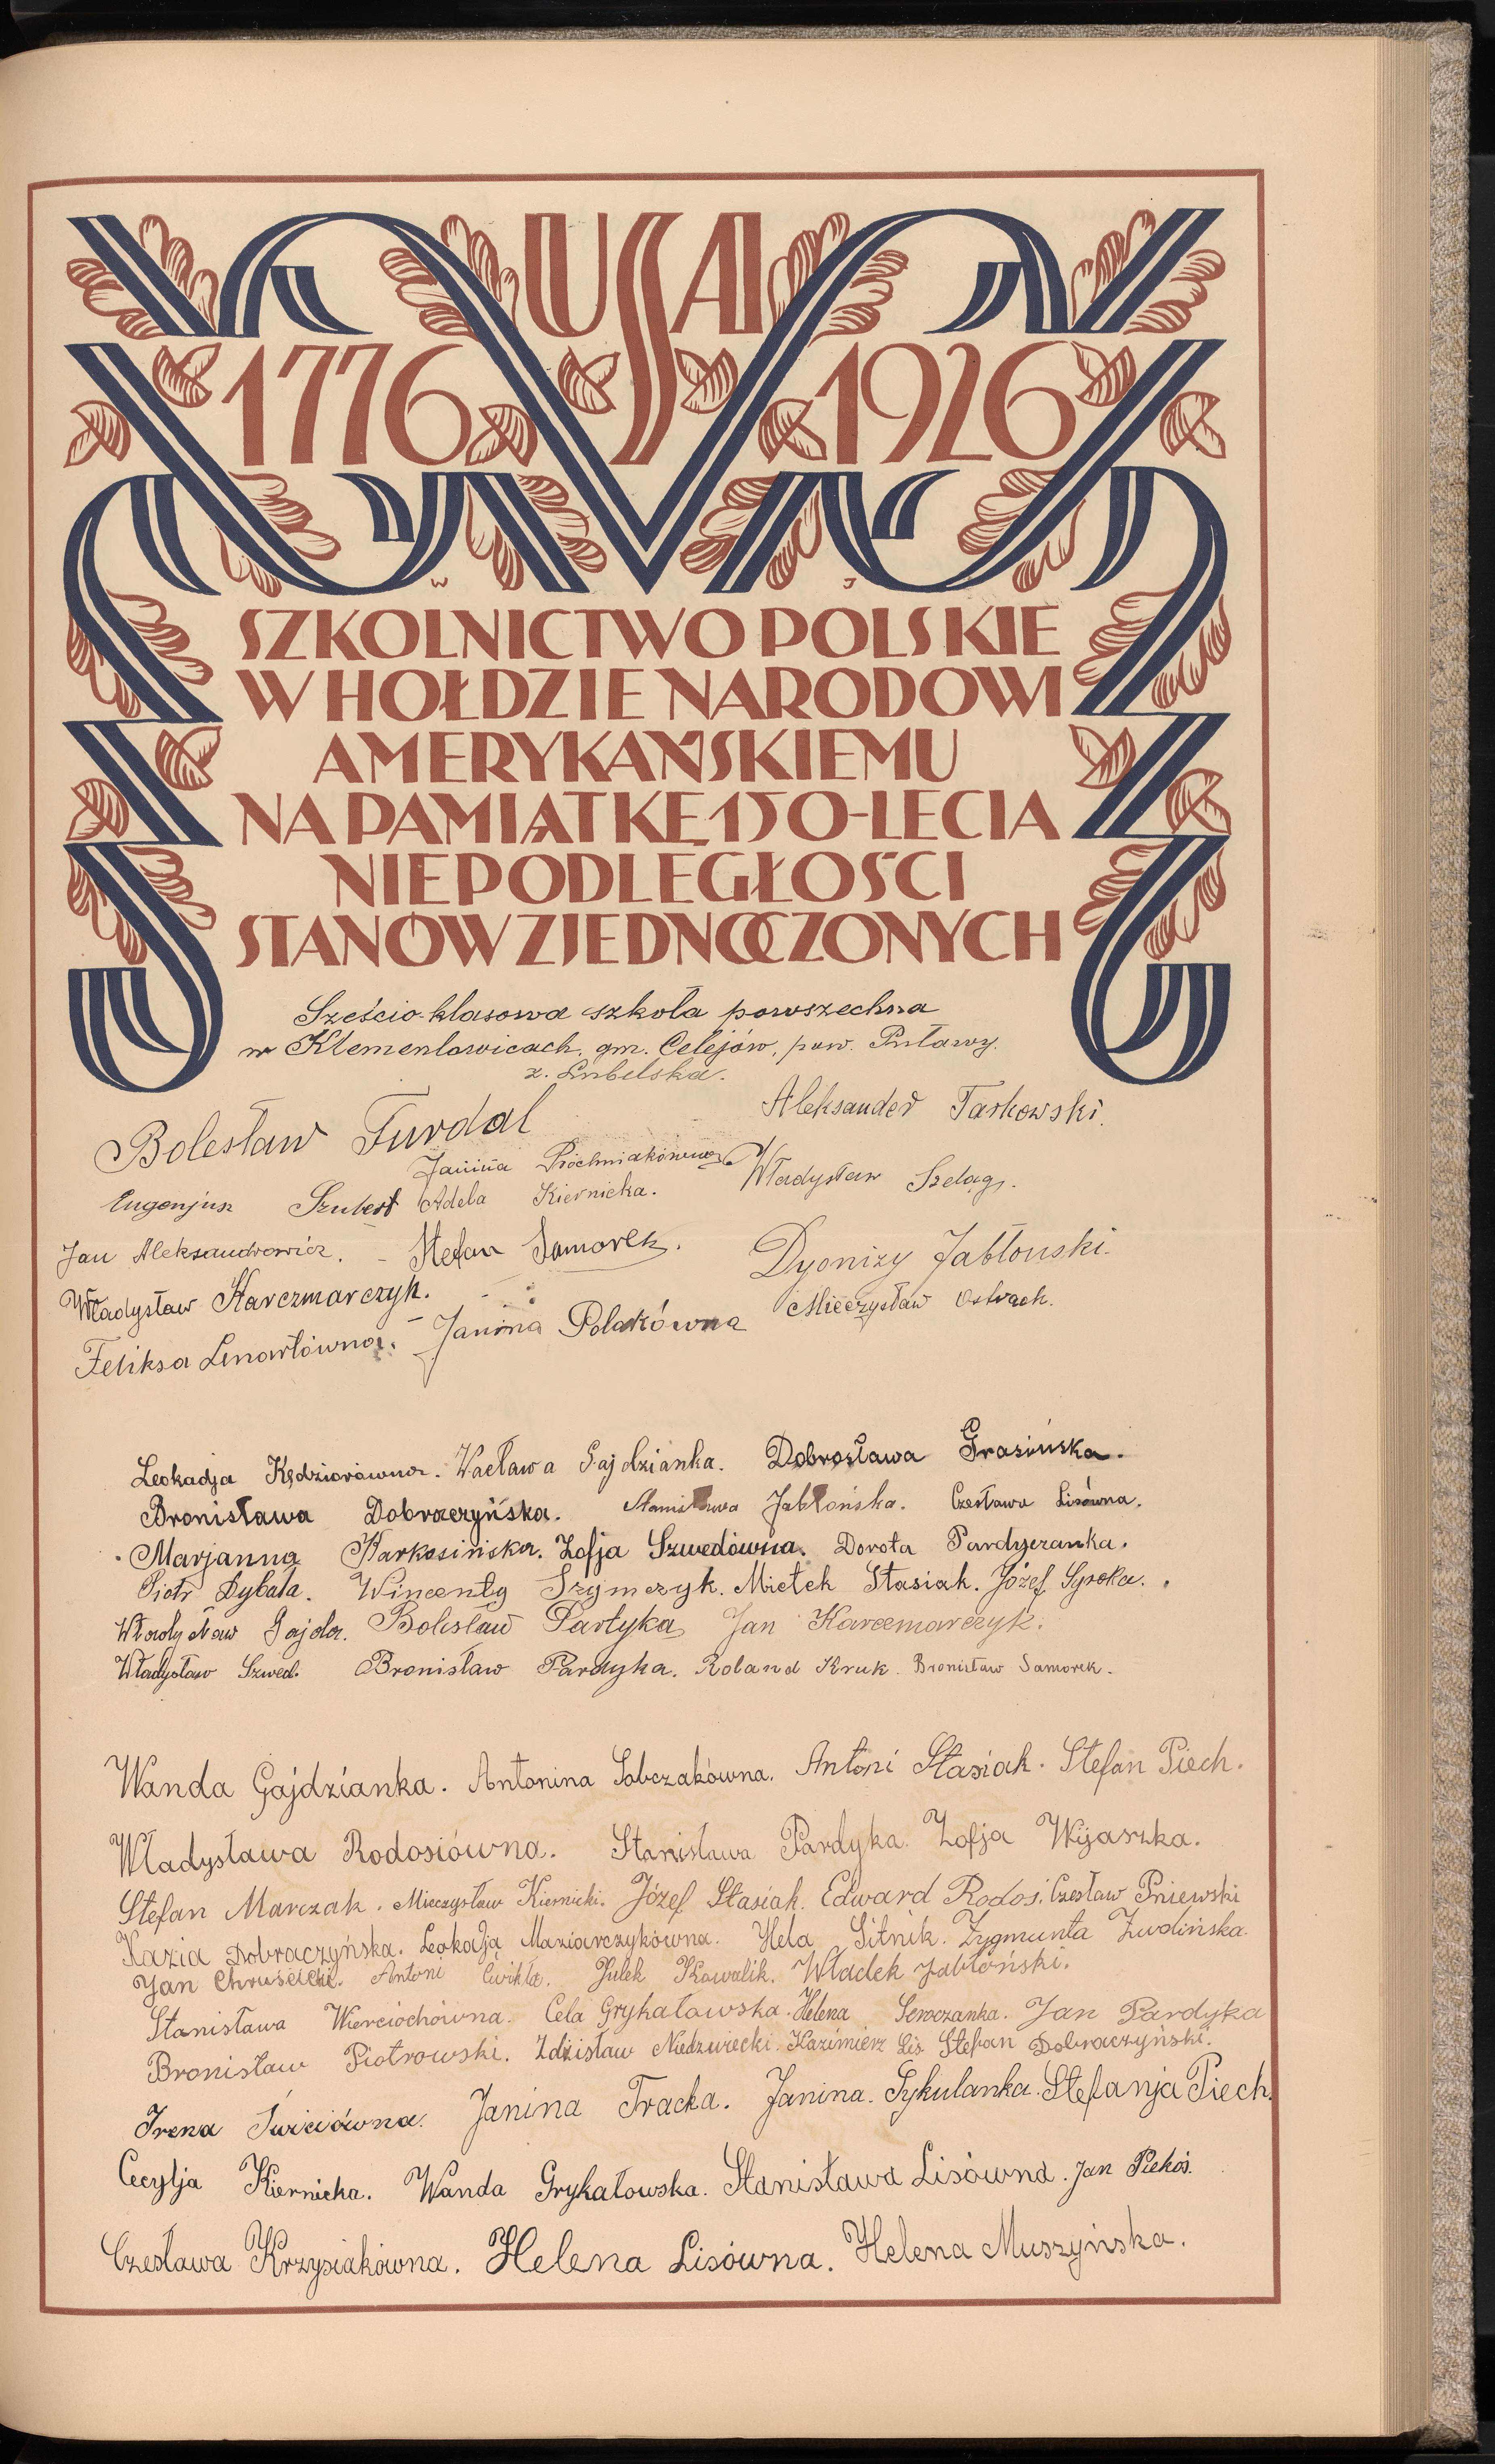 USA
1776 1926
W J
SZKOLNICTWO POLSKIE
W HOŁDZIE NARODOWI
AMERYKAŃSKIEMU
NA PAMIĄTKĘ 150-LECIA
NIEPODLEGŁOŚCI
STANÓW ZJEDNOCZONYCH
Sześcio-klasowa szkoła powszechna
w Klementowicach, gm. Celejów, pow. Puławy.
z. Lubelska.
Bolesław Furdal
Aleksander Tarkowski.
Janina Próchniakówna
Władysław Szeląg.
Eugenjusz Szubert Adela Kiernicka.
Jan Aleksandrowicz. - Stefan Samorek.
Dyonizy Jabłonski.
Władysław Karczmarczyk.
Mieczysław Ostrach.
Feliksa Lenartówna. - Janina Polakówna
Leokadja Kędziorówna. Wacława Gajdzianka. Dobrosława Grasińska.
Bronisława Dobraczyńska. Stanisława Jabłońska. Czesława Lisówna.
Marjanna Karkosińska. Zofja Szwedówna. Dorota Pardyczanka.
Piotr Dybała. Wincenty Szymczyk. Mietek Stasiak. Józef Sysoka.
Władysław Gajda. Bolesław Partyka Jan Karczmarczyk.
Władysław Szwed. Bronisław Pardyka. Roland Kruk. Bronisław Samorek.
Wanda Gajdzianka. Antonina Sobczakówna. Antoni Stasiak. Stefan Piech.
Władysława Rodosiówna. Stanisława Pardyka. Zofja Wijaszka.
Stefan Marczak. Mieczysław Kiernicki. Józef Stasiak. Edward Rodoś. Czesław Pniewski
Kazia Dobraczyńska. Leokadja Maziarczykówna. Hela Sitnik. Zygmunta Żwolińska.
Jan Chruścicki. Antoni Ćwikła. Julek Kowalik. Władek Jabłoński.
Stanisława Wierciochówna. Cela Grykałowska. Helena Sewczanka. Jan Pardyka
Bronisław Piotrowski. Zdzisław Niedzwiecki. Kazimierz Lis Stefan Dobraczyński.
Irena Janina Tracka. Janina. Sykulanka. Stefanja Piech.
Cecylja Kiernicka. Wanda Grykałowska. Stanisława Lisówna. Jan Piekoś.
Czesława Krzysiakówna. Helena Lisówna. Helena Muszyńska.